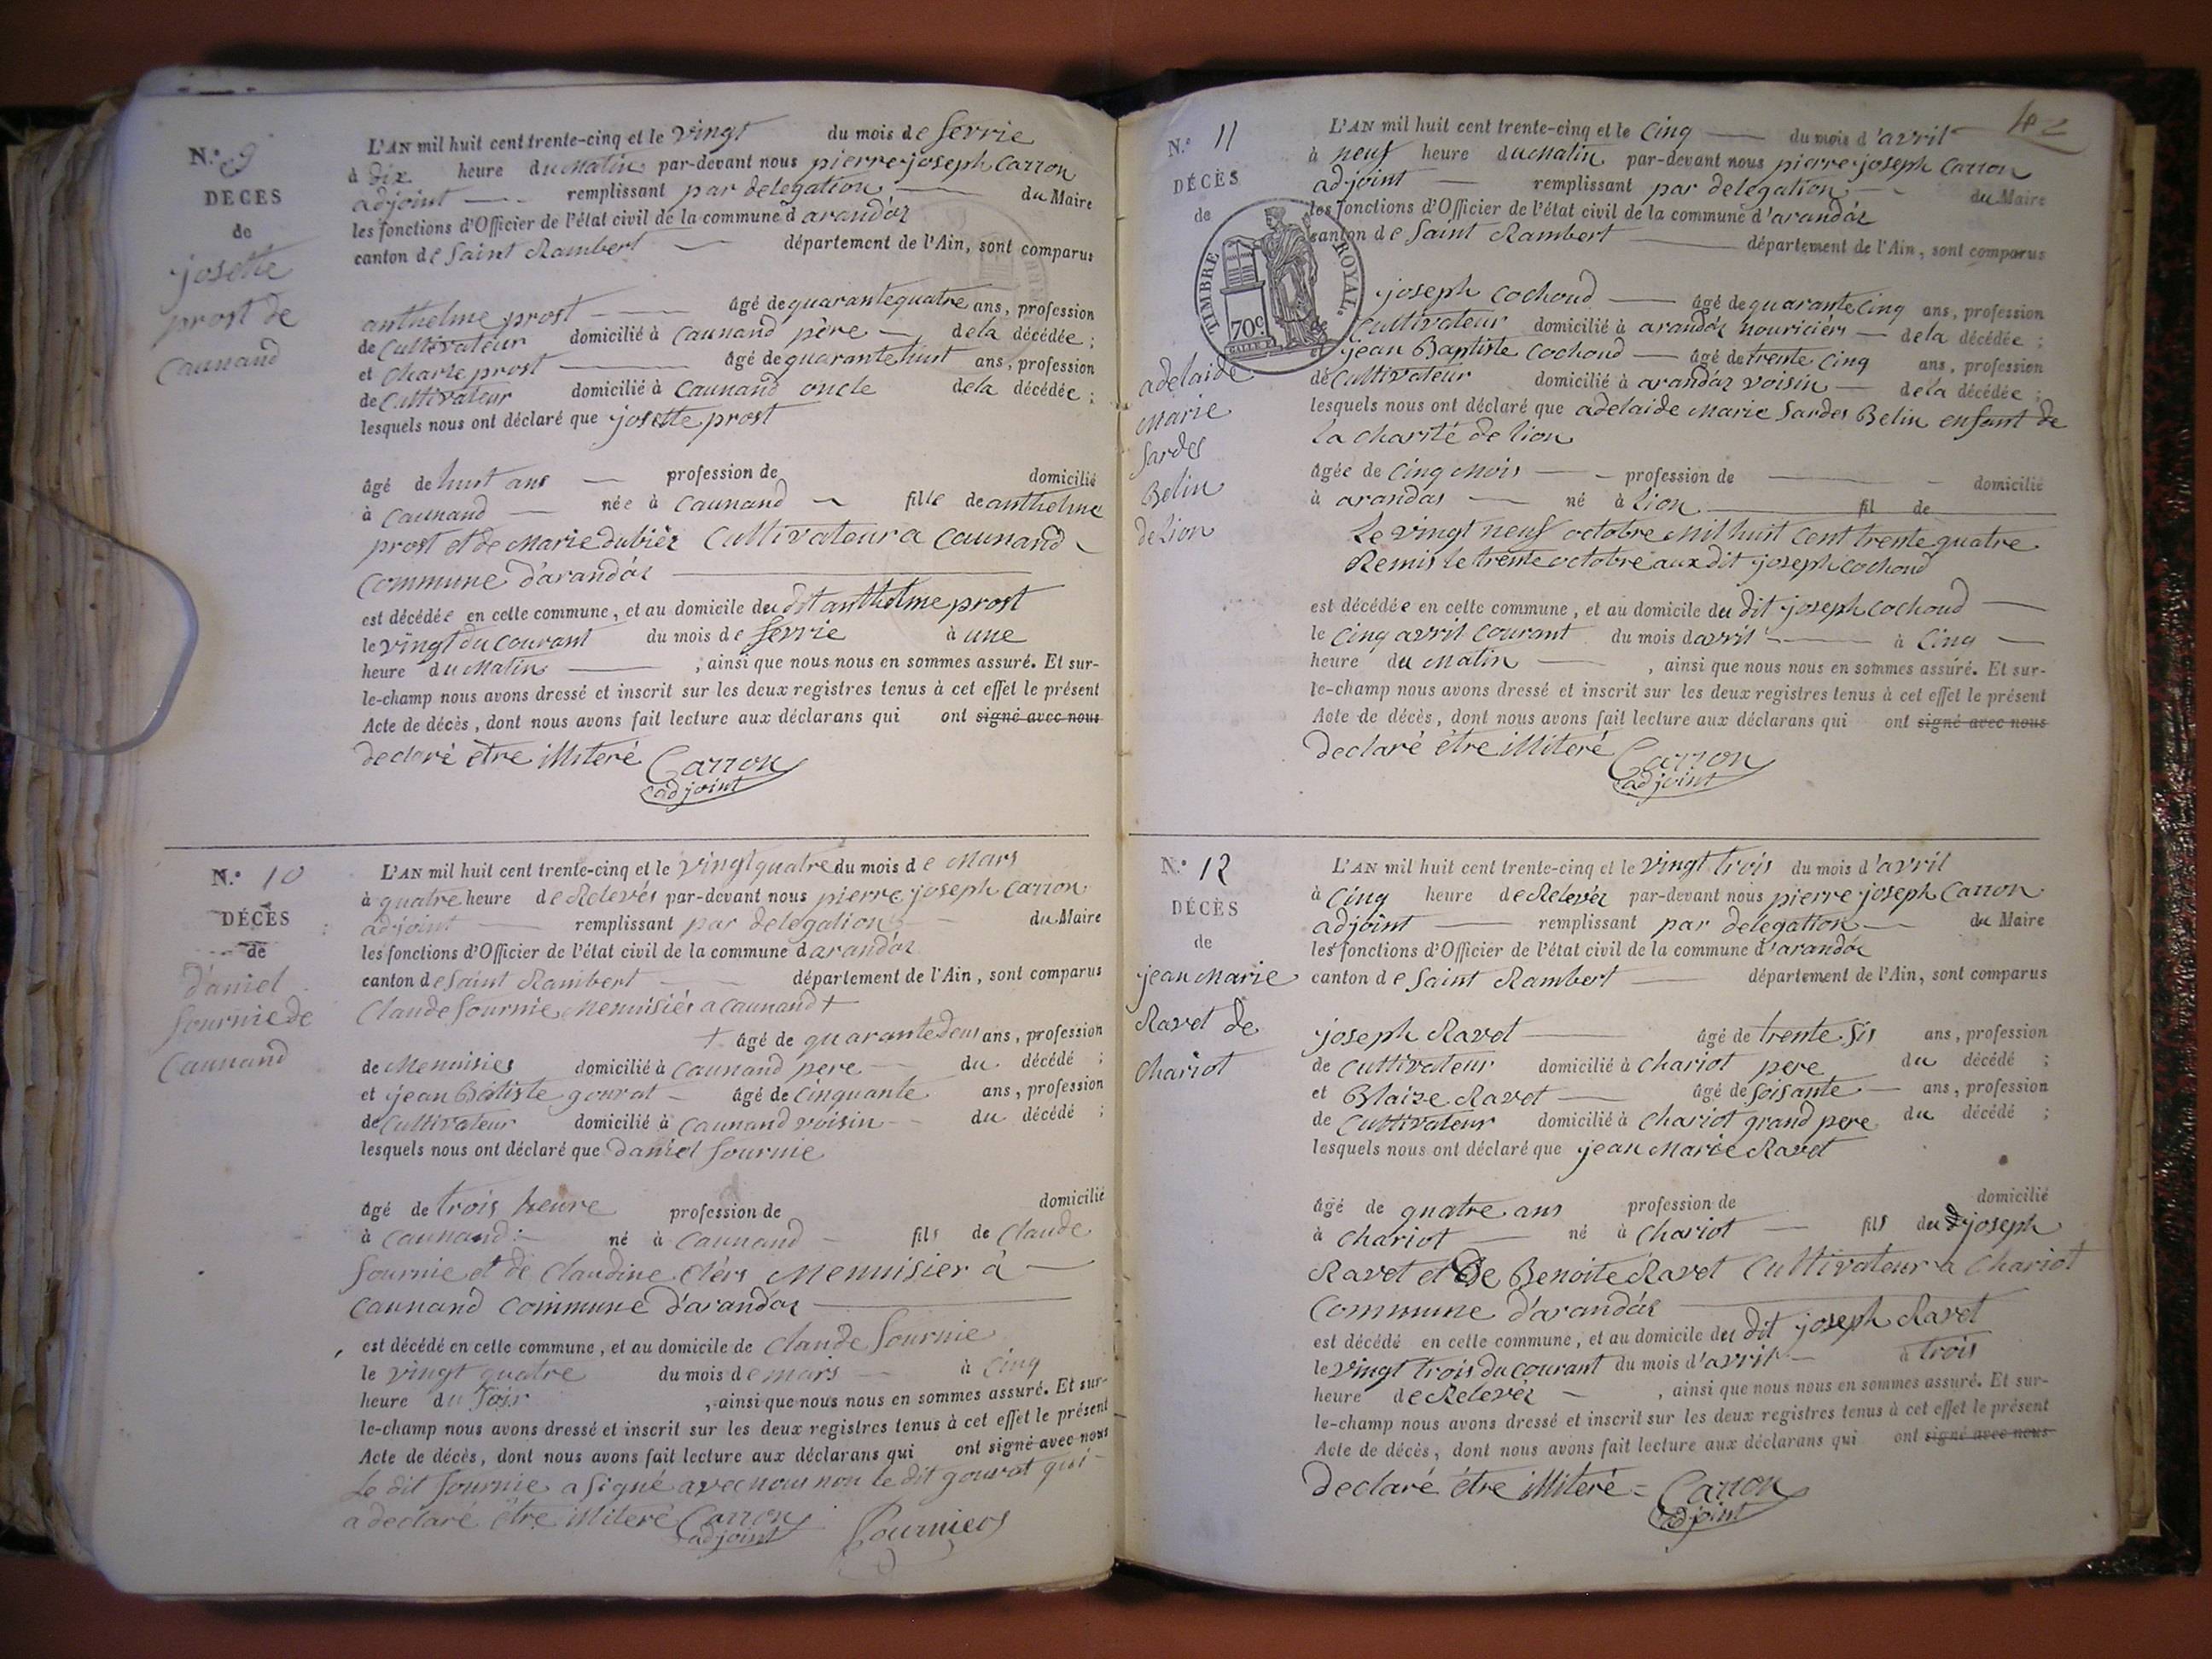 N.° 9
DÉCÈS
de
josette
prost de
Caunand
L'AN mil huit cent trente-cinq et le vingt du mois de fevrie
à dix heure du Matin par-devant nous pierre joseph Carron
adjoint remplissant par delegation du Maire
les fonctions d'Officier de l'état civil de la commune d arandáz
canton de Saint Rambert département de l'Ain, sont comparus
anthelme prost âgé de quarante quatre ans, profession
de Cultivateur domicilié à Caunand père de la décédée ;
et Charle prost âgé de quarante huit ans, profession
de Cultivateur domicilié à Caunand oncle de la décédée ;
lesquels nous ont déclaré que josette prost
âgé de huit ans profession de domicilié
à Caunand née à Caunand fille de anthelme
prost et de Marie dubiéz Cultivateur a Caunand
Commune d'arandáz
est décédée en cette commune, et au domicile du dit anthelme prost
le vingt du courant du mois de fevrie à une
heure du Matin , ainsi que nous nous en sommes assuré. Et sur-
le-champ nous avons dressé et inscrit sur les deux registres tenus à cet effet le présent
Acte de décès, dont nous avons fait lecture aux déclarans qui ont signé avec nous
declaré être illiteré Carron
adjoint
N.° 10
DÉCÈS
de
daniel
fournie de
Caunand
L'AN mil huit cent trente-cinq et le vingt quatre du mois de Mars
à quatre heure de Relevés par-devant nous pierre joseph Carron
adjoint remplissant par delegation du Maire
les fonctions d'Officier de l'état civil de la commune d arandáz
canton de Saint Rambert département de l'Ain, sont comparus
Claude fournie Menuisiés a caunand +
+ âgé de quarante deus ans, profession
de Menuisies domicilié à Caunand pere du décédé ;
et jean Batiste gourat âgé de Cinquante ans, profession
de Cultivateur domicilié à Caunand voisin du décédé ;
lesquels nous ont déclaré que daniel fournie
âgé de trois heure profession de domicilié
à Caunand né à Caunand fils de Claude
fournie et de Claudine Menuisier à
caunand Commune d'arandáz
est décédé en cette commune, et au domicile de Claude fournie
le vingt quatre du mois de mars à Cinq
heure du soir , ainsi que nous nous en sommes assuré. Et sur-
le-champ nous avons dressé et inscrit sur les deux registres tenus à cet effet le présent
Acte de décès, dont nous avons fait lecture aux déclarans qui ont signé avec nous
Le dit fournie a signé avec nous non le dit gourat qui
a declaré être illiteré Carron
adjoint
Fourniers
42
N.° 11
DÉCÈS
de
TIMBRE ROYAL
70c
adelaide
Marie
Sardes
Belin
de Lion
L'AN mil huit cent trente-cinq et le Cinq du mois d'avril
à neuf heure du Matin par-devant nous pierre joseph Carron
adjoint remplissant par delegation du Maire
les fonctions d'Officier de l'état civil de la commune d'arandáz
canton de Saint Rambert département de l'Ain, sont comparus
joseph Cochoud âgé de quarante Cinq ans, profession
Cultivateur domicilié à arandáz nouriciérs de la décédée ;
et jean Baptiste Cochoud âgé de trente Cinq ans, profession
de Cultivateur domicilié à arandáz voisin de la décédée ;
lesquels nous ont déclaré que adelaide Marie Sardes Belin enfant de
La charité de lion
âgée de Cinq Mois profession de domicilié
à arandas né à lion fil de
Le vingt neuf octobre Mil huit Cent trente quatre
Remis le trente octobre aux dit joseph Cochoud
est décédée en cette commune, et au domicile du dit joseph Cochoud
le Cinq avril courant du mois d'avril à Cinq
heure du Matin , ainsi que nous nous en sommes assuré. Et sur-
le-champ nous avons dressé et inscrit sur les deux registres tenus à cet effet le présent
Acte de décès, dont nous avons fait lecture aux déclarans qui ont signé avec nous
declaré être illiteré Carron
adjoint
N.° 12
DÉCÈS
de
jean Marie
Ravet de
Chariot
L'AN mil huit cent trente-cinq et le vingt trois du mois d'avril
à Cinq heure de Relevéz par-devant nous pierre joseph Carron
adjoint remplissant par delegation du Maire
les fonctions d'Officier de l'état civil de la commune d'arandáz
canton de Saint Rambert département de l'Ain, sont comparus
joseph Ravet âgé de trente sis ans, profession
de Cultivateur domicilié à Chariot pere du décédé ;
et Blaize Ravet âgé de soisante ans, profession
de Cultivateur domicilié à Chariot grand pere du décédé ;
lesquels nous ont déclaré que jean Marie Ravet
âgé de quatre ans profession de domicilié
à Chariot né à Chariot fils du joseph
Ravet et De Benoite Ravet Cultivateur a Chariot
Commune d'arandáz
est décédé en cette commune, et au domicile du dit joseph Ravet
le vingt trois du courant du mois d'avril à trois
heure de Relevéz , ainsi que nous nous en sommes assuré. Et sur-
le-champ nous avons dressé et inscrit sur les deux registres tenus à cet effet le présent
Acte de décès, dont nous avons fait lecture aux déclarans qui ont signé avec nous
declaré être illiteré = Carron
adjoint